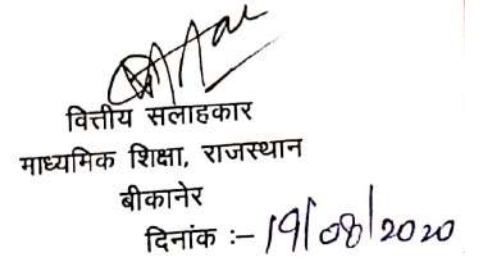 वित्तीय सलाहकार
माध्यमिक शिक्षा, राजस्थान
बीकानेर
दिनांक :- 19/08/2020